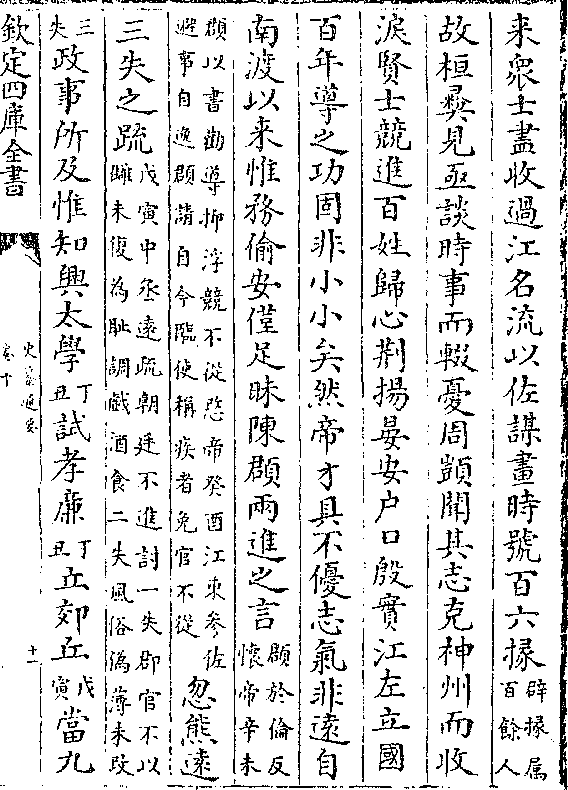 来衆士盡收過江名流以佐謀畫時號百六掾辟掾屬百餘人
故桓彛見亟談時事而輟憂周顗聞其志克神州而收
淚賢士競進百姓歸心荆揚晏安户口殷實江左立國
百年導之功固非小小矣然帝才具不優志氣非遠自
南渡以来惟務偷安僅足昧陳頵兩進之言頵於倫反懷帝辛未
頵以書勸導抑浮競不從愍帝癸酉江東參佐避事自逸頵請自今臨使稱疾者免官不從忽熊遠
三失之疏戊寅中丞遠疏朝廷不進討一失郡官不以讎未復為恥調戲酒食二失風俗偽薄未政
三失政事所及惟知興太學丁丑試孝廉丁丑立郊丘戊寅當九
欽定四庫全書
卷十
十一